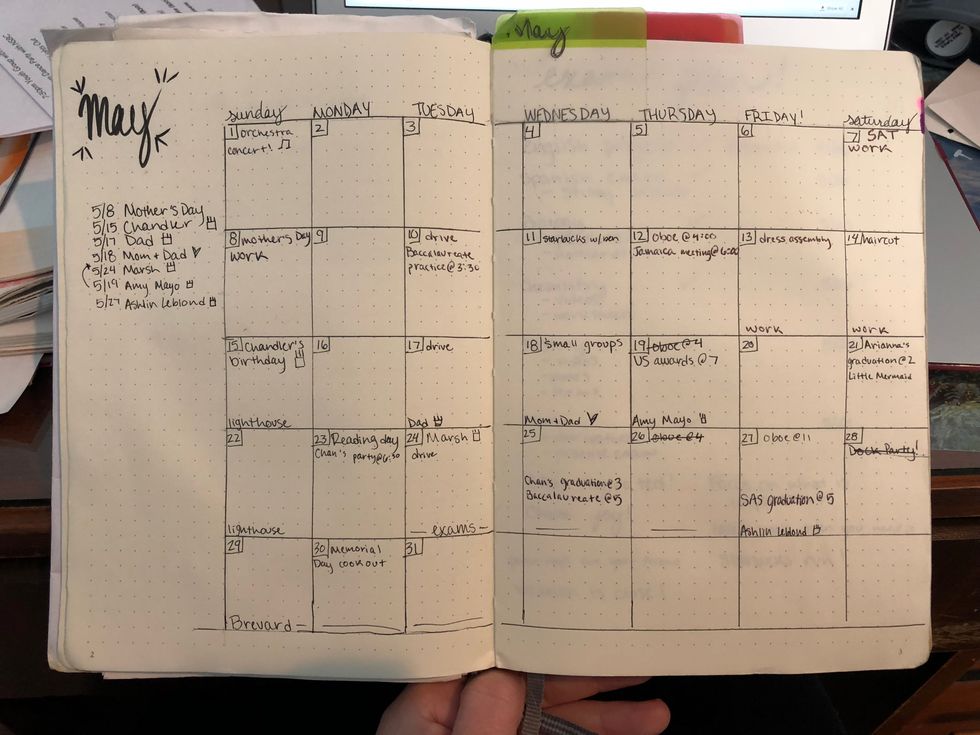 May
May
sunday MONDAY TUESDAY WEDNESDAY THURSDAY FRIDAY! saturday
5/8 Mother's Day
5/15 Chandler
5/17 Dad
5/18 Mom + Dad
5/24 Marsh
5/19 Amy Mayo
5/27 Ashlin Leblond
1 orchestra
concert!
2
3
4
5
6
7 SAT
work
8 mother's Day
work
9
10 drive
Baccalaureate
practice @ 3:30
11 starbucks w/ ben
12 oboe @ 4:00
Jamaica meeting @ 6:00
13 dress assembly
work
14 haircut
work
15 Chandler's
birthday
lighthouse
16
17 drive
Dad
18 small groups
Mom + Dad
19 oboe @ 4
US awards @ 7
Amy Mayo
20
21 Arianna's
graduation @ 2
Little Mermaid
22
lighthouse
23 Reading day
Chan's party @ 6:30
24 Marsh
drive
— exams —
25
Chan's graduation @ 3
Baccalaureate @ 5
26 oboe @ 4
27 oboe @ 11
SAS graduation @ 5
Ashlin Leblond
28
Dock Party!
29
Brevard —
30 Memorial
Day cookout
31
2
3